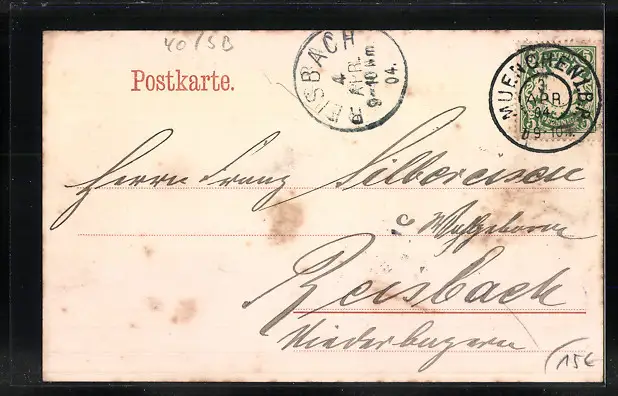 40/5B
Postkarte.
REISBACH
4
APR.
9-10 Vm
04.
MUENCHEN I.B.P.
3
APR.
04
5
Herrn Franz Silbereisen
Wohlgeboren
Reisbach
Niederbayern
15€